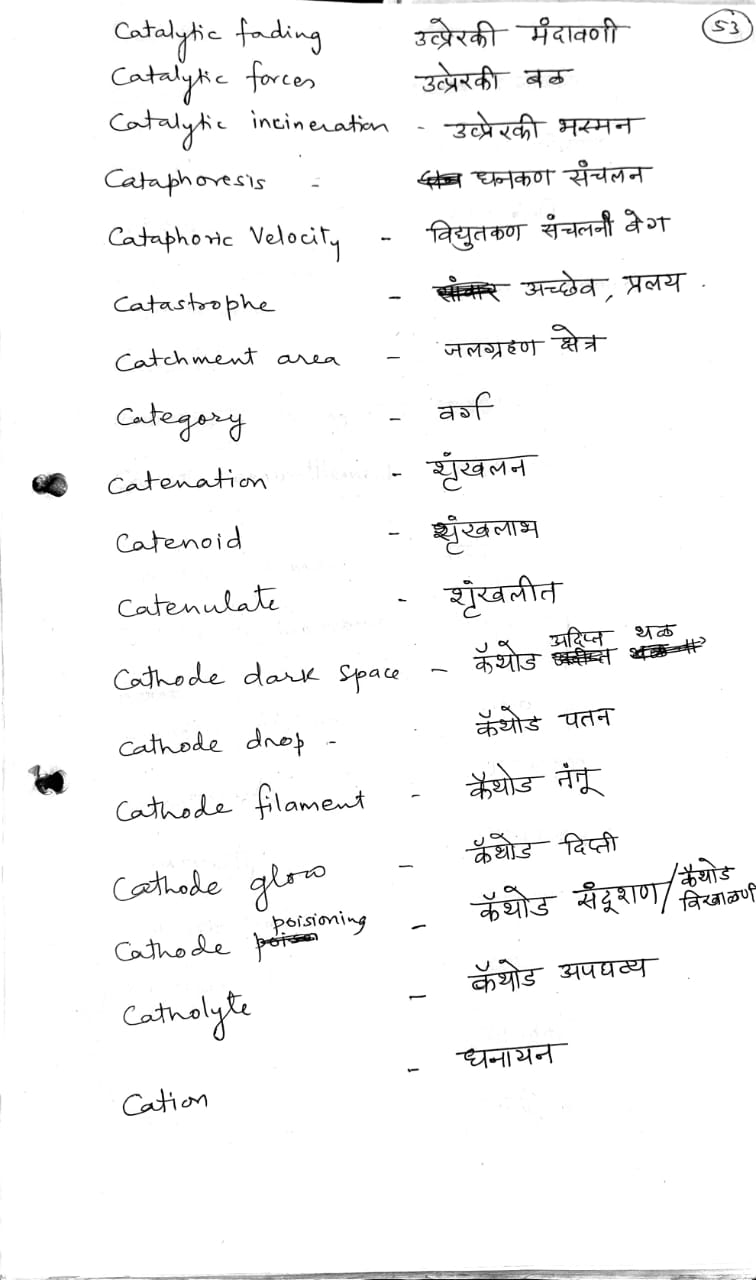 53
Catalytic fading उत्प्रेरकी मंदावणी
Catalytic forces उत्प्रेरकी बळ
Catalytic incineration - उत्प्रेरकी भस्मन
Cataphoresis - धनकण संचलन
Cataphoric Velocity - विद्युतकण संचलनी वेग
Catastrophe - अच्छेव, प्रलय.
Catchment area - जलग्रहण क्षेत्र
Category - वर्ग
Catenation - शृंखलन
Catenoid - शृंखलाभ
Catenulate - शृंखलीत
Cathode dark space - कॅथोड अदिप्त थळ
Cathode drop - कॅथोड पतन
Cathode filament - कॅथोड तंतू
Cathode glow - कॅथोड दिप्ती
Cathode poisioning - कॅथोड संदूशण/कॅथोड विखाळणी
Catholyte - कॅथोड अपघट्य
Cation - धनायन